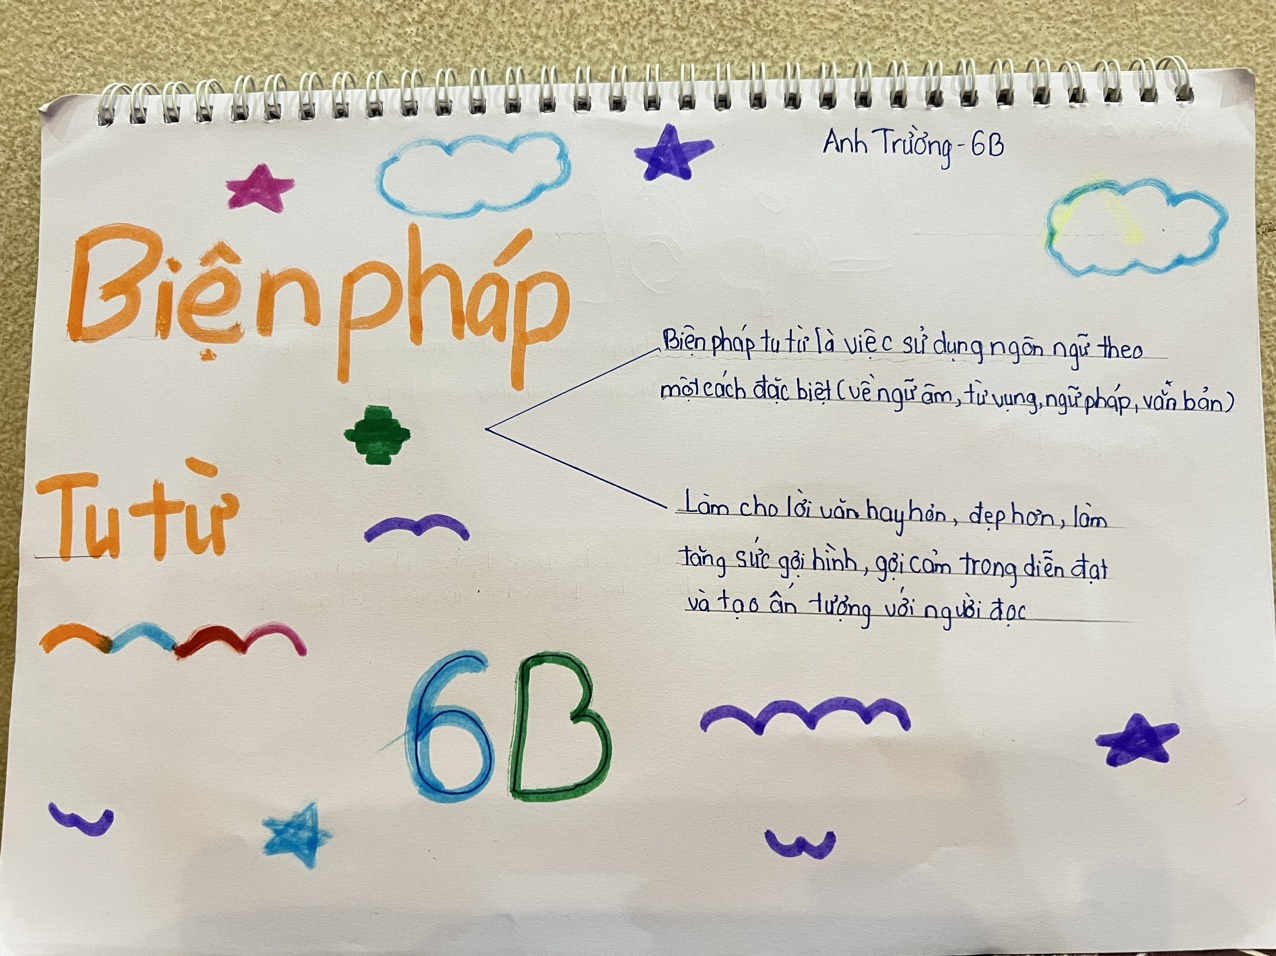 Anh Trường - 6B
Biện pháp
Tu từ
Biện pháp tu từ là việc sử dụng ngôn ngữ theo
một cách đặc biệt (về ngữ âm, từ vựng, ngữ pháp, văn bản)
Làm cho lời văn hay hơn, đẹp hơn, làm
tăng sức gợi hình, gợi cảm trong diễn đạt
và tạo ấn tượng với người đọc
6B